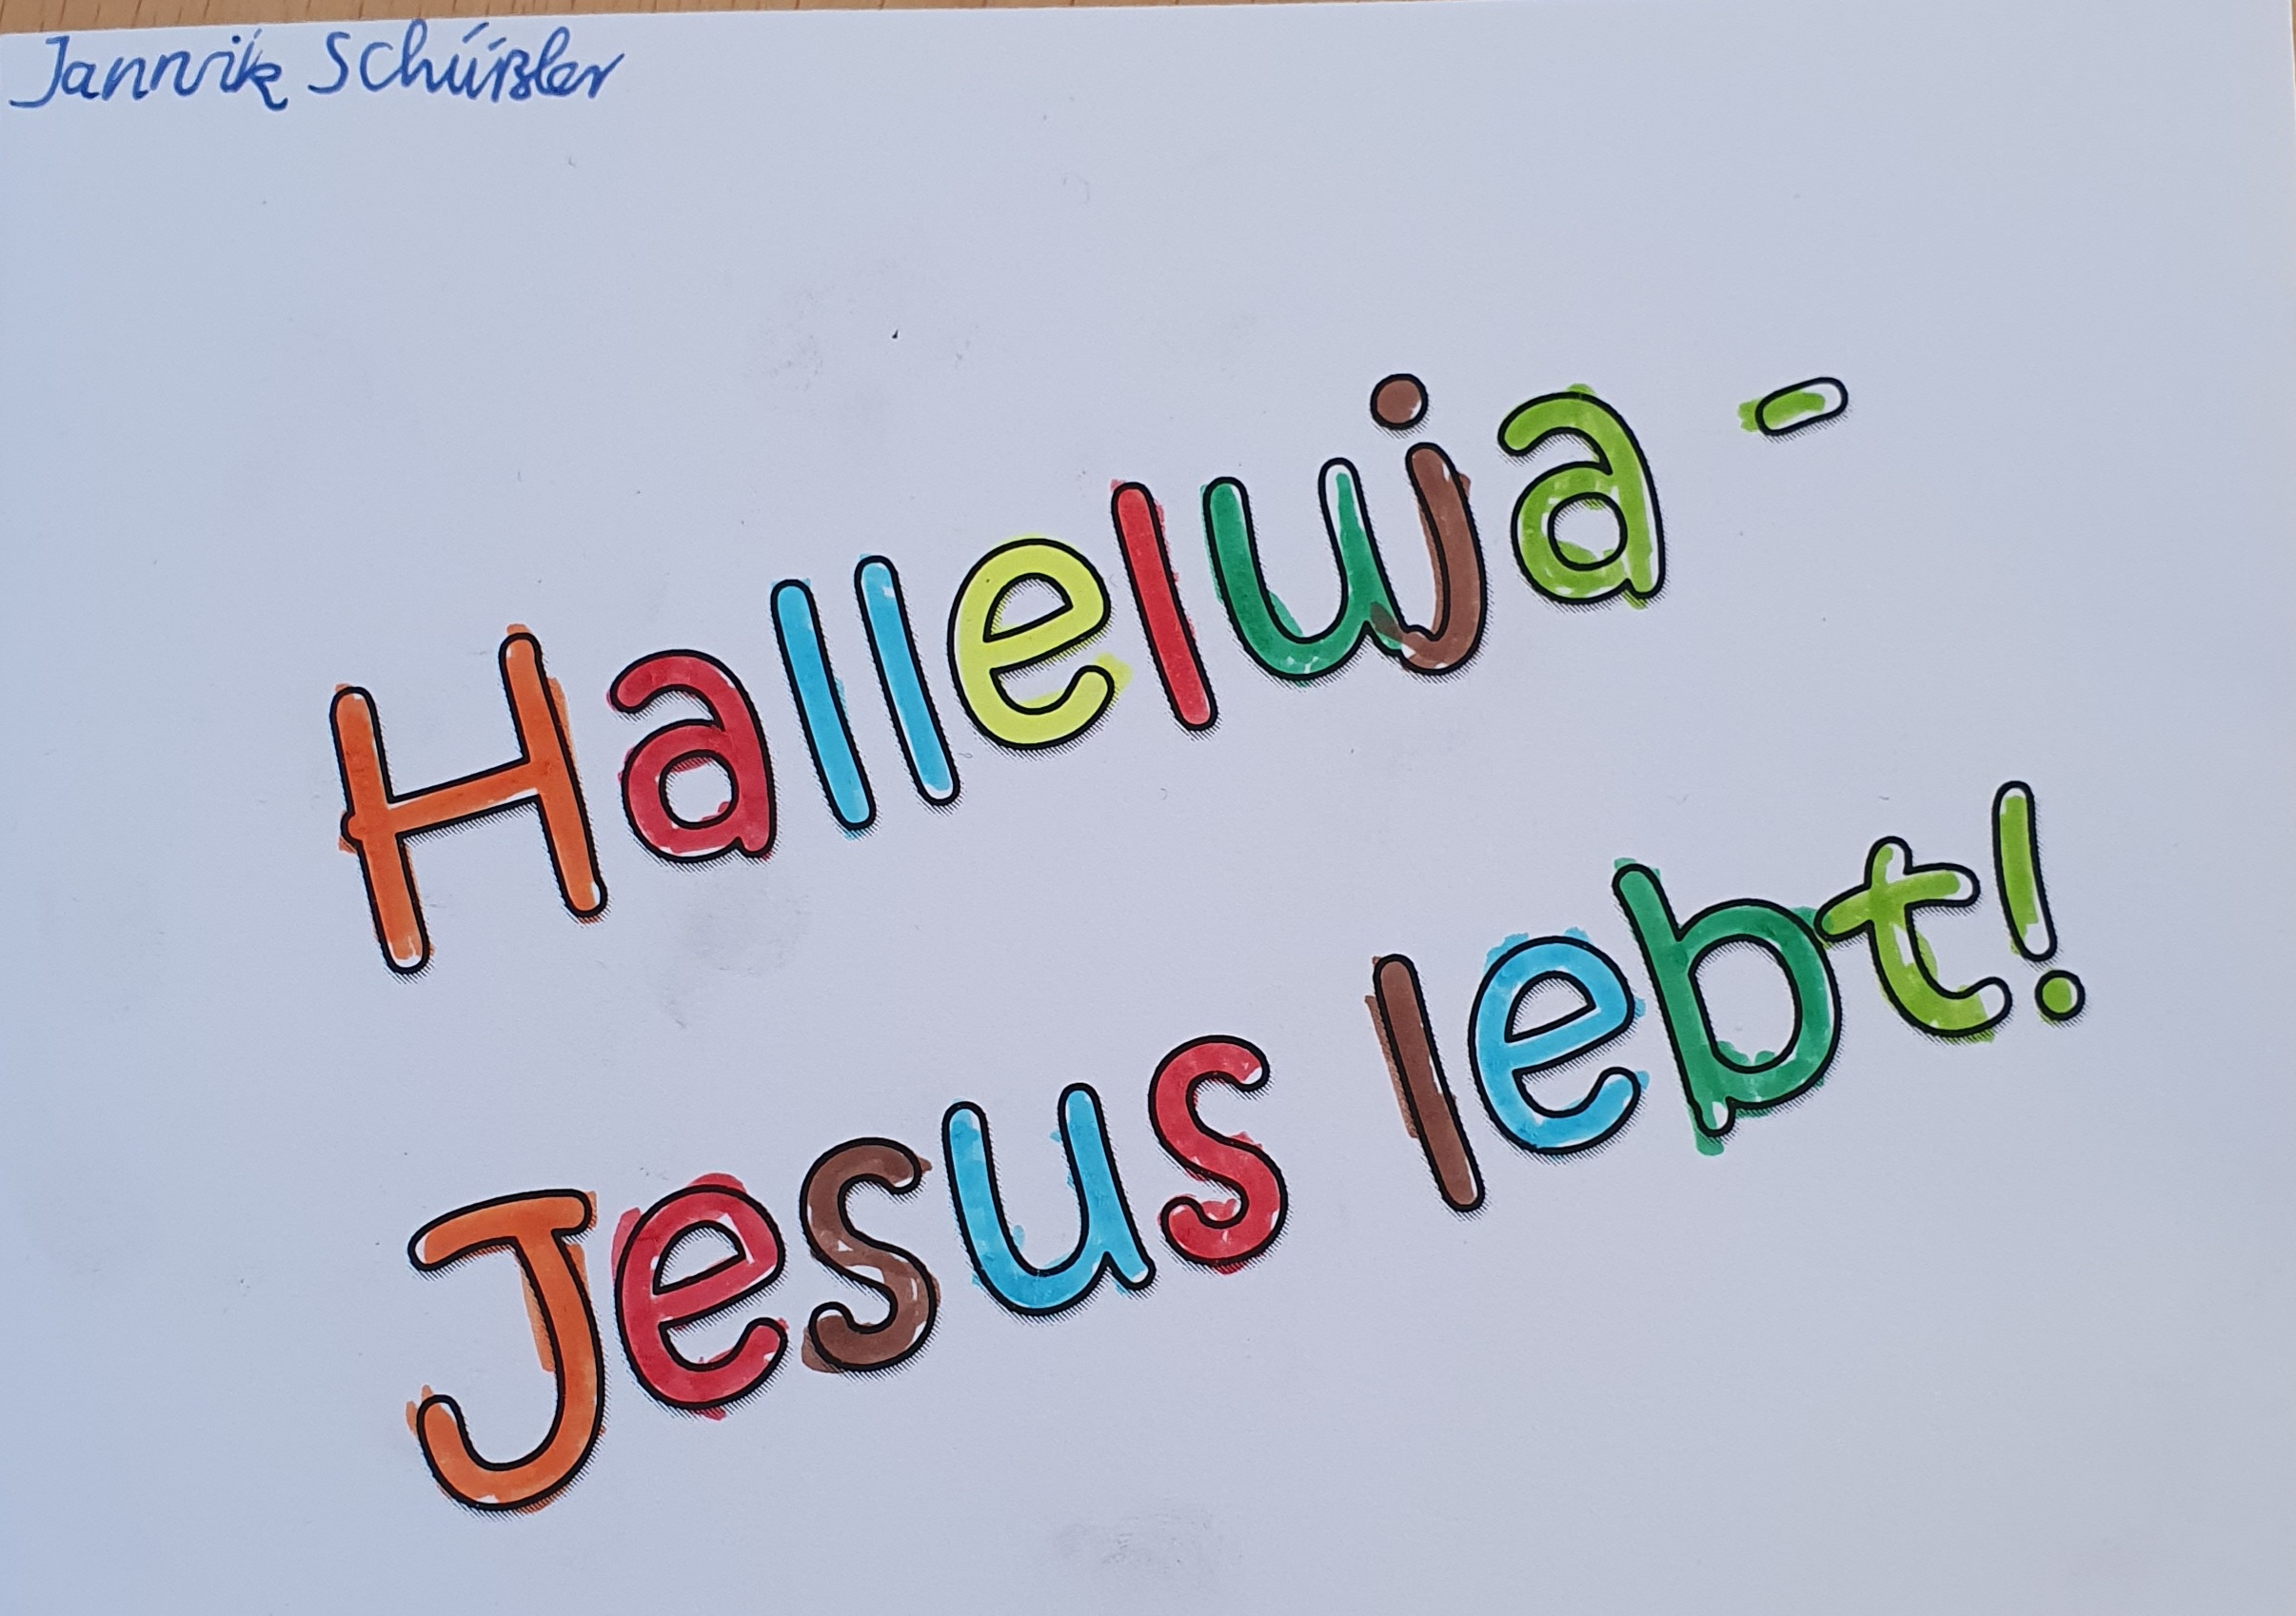 Jannik Schüßler
Halleluja -
Jesus lebt!